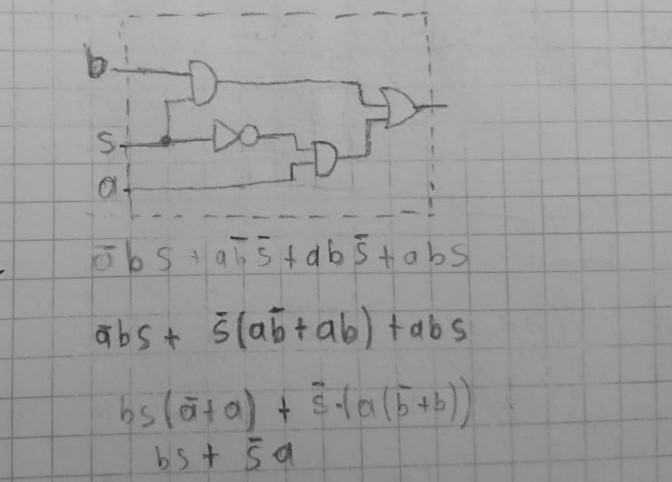 b
s
a
a̅bs + ab̅s̅ + abs̅ + abs
a̅bs + s̅(ab̅ + ab) + abs
bs(a̅+a) + s̅·(a(b̅+b))
bs + s̅a